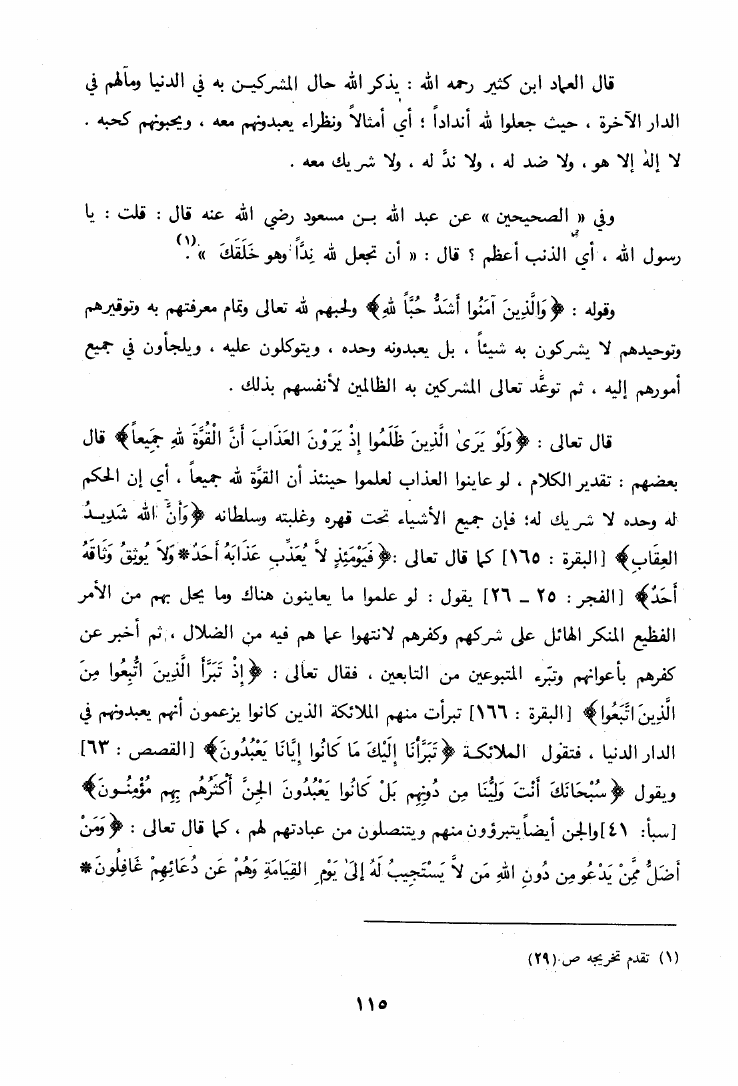 قال العماد ابن كثير رحمه الله : يذكر الله حال المشركين به في الدنيا ومآلهم في
الدار الآخرة ، حيث جعلوا لله أنداداً ؛ أي أمثالاً ونظراء يعبدونهم معه ، ويحبونهم كحبه .
لا إلهٰ إلا هو ، ولا ضد له ، ولا ندَّ له ، ولا شريك معه .
وفي « الصحيحين » عن عبد الله بن مسعود رضي الله عنه قال : قلت : يا
رسول الله ، أي الذنب أعظم ؟ قال : « أن تجعل لله نِدًّا وهو خَلَقَكَ »(١) .
وقوله : ﴿وَالَّذِينَ آمَنُوا أَشَدُّ حُبًّا للهِ﴾ ولحبهم لله تعالى وتمام معرفتهم به وتوقيرهم
وتوحيدهم لا يشركون به شيئاً ، بل يعبدونه وحده ، ويتوكلون عليه ، ويلجأون في جميع
أمورهم إليه ، ثم توعَّد تعالى المشركين به الظالمين لأنفسهم بذلك .
قال تعالى : ﴿وَلَوْ يَرَىٰ الَّذِينَ ظَلَمُوا إِذْ يَرَوْنَ العَذَابَ أَنَّ الْقُوَّةَ للهِ جَمِيعاً﴾ قال
بعضهم : تقدير الكلام ، لو عاينوا العذاب لعلموا حينئذ أن القوَّة لله جميعاً ، أي إن الحكم
له وحده لا شريك له؛ فإن جميع الأشياء تحت قهره وغلبته وسلطانه ﴿وَأَنَّ الله شَدِيدُ
العِقَابِ﴾ [البقرة : ١٦٥] كما قال تعالى :﴿فَيَوْمَئِذٍ لاَّ يُعَذِّبُ عَذَابَهُ أَحَدٌ*وَلاَ يُوثِقُ وَثَاقَهُ
أَحَدٌ﴾ [الفجر : ٢٥ ــ ٢٦] يقول : لو علموا ما يعاينون هناك وما يحل بهم من الأمر
الفظيع المنكر الهائل على شركهم وكفرهم لانتهوا عما هم فيه من الضلال ، ثم أخبر عن
كفرهم بأعوانهم وتبّرء المتبوعين من التابعين ، فقال تعالى : ﴿إِذْ تَبَرَّأَ الَّذِينَ اتُّبِعُوا مِنَ
الَّذِينَ اتَّبَعُوا﴾ [البقرة : ١٦٦] تبرأت منهم الملائكة الذين كانوا يزعمون أنهم يعبدونهم في
الدار الدنيا ، فتقول الملائكة ﴿تَبَرَّأْنَا إِلَيْكَ مَا كَانُوا إِيَّانَا يَعْبُدُونَ﴾ [القصص : ٦٣]
ويقول ﴿سُبْحَانَكَ أَنْتَ وَلِيُّنَا مِن دُونِهِم بَلْ كَانُوا يَعْبُدُونَ الجِنَّ أَكْثَرُهُم بِهِم مُؤْمِنُونَ﴾
[سبأ: ٤١]والجن أيضاً يتبرؤون منهم ويتنصلون من عبادتهم لهم ، كما قال تعالى : ﴿وَمَنْ
أَضَلُّ مِمَّنْ يَدْعُو مِن دُونِ اللهِ مَن لاَّ يَسْتَجِيبُ لَهُ إِلَىٰ يَوْمِ القِيَامَةِ وَهُمْ عَن دُعَائِهِمْ غَافِلُونَ*
(١) تقدم تخريجه ص.(٢٩)
١١٥